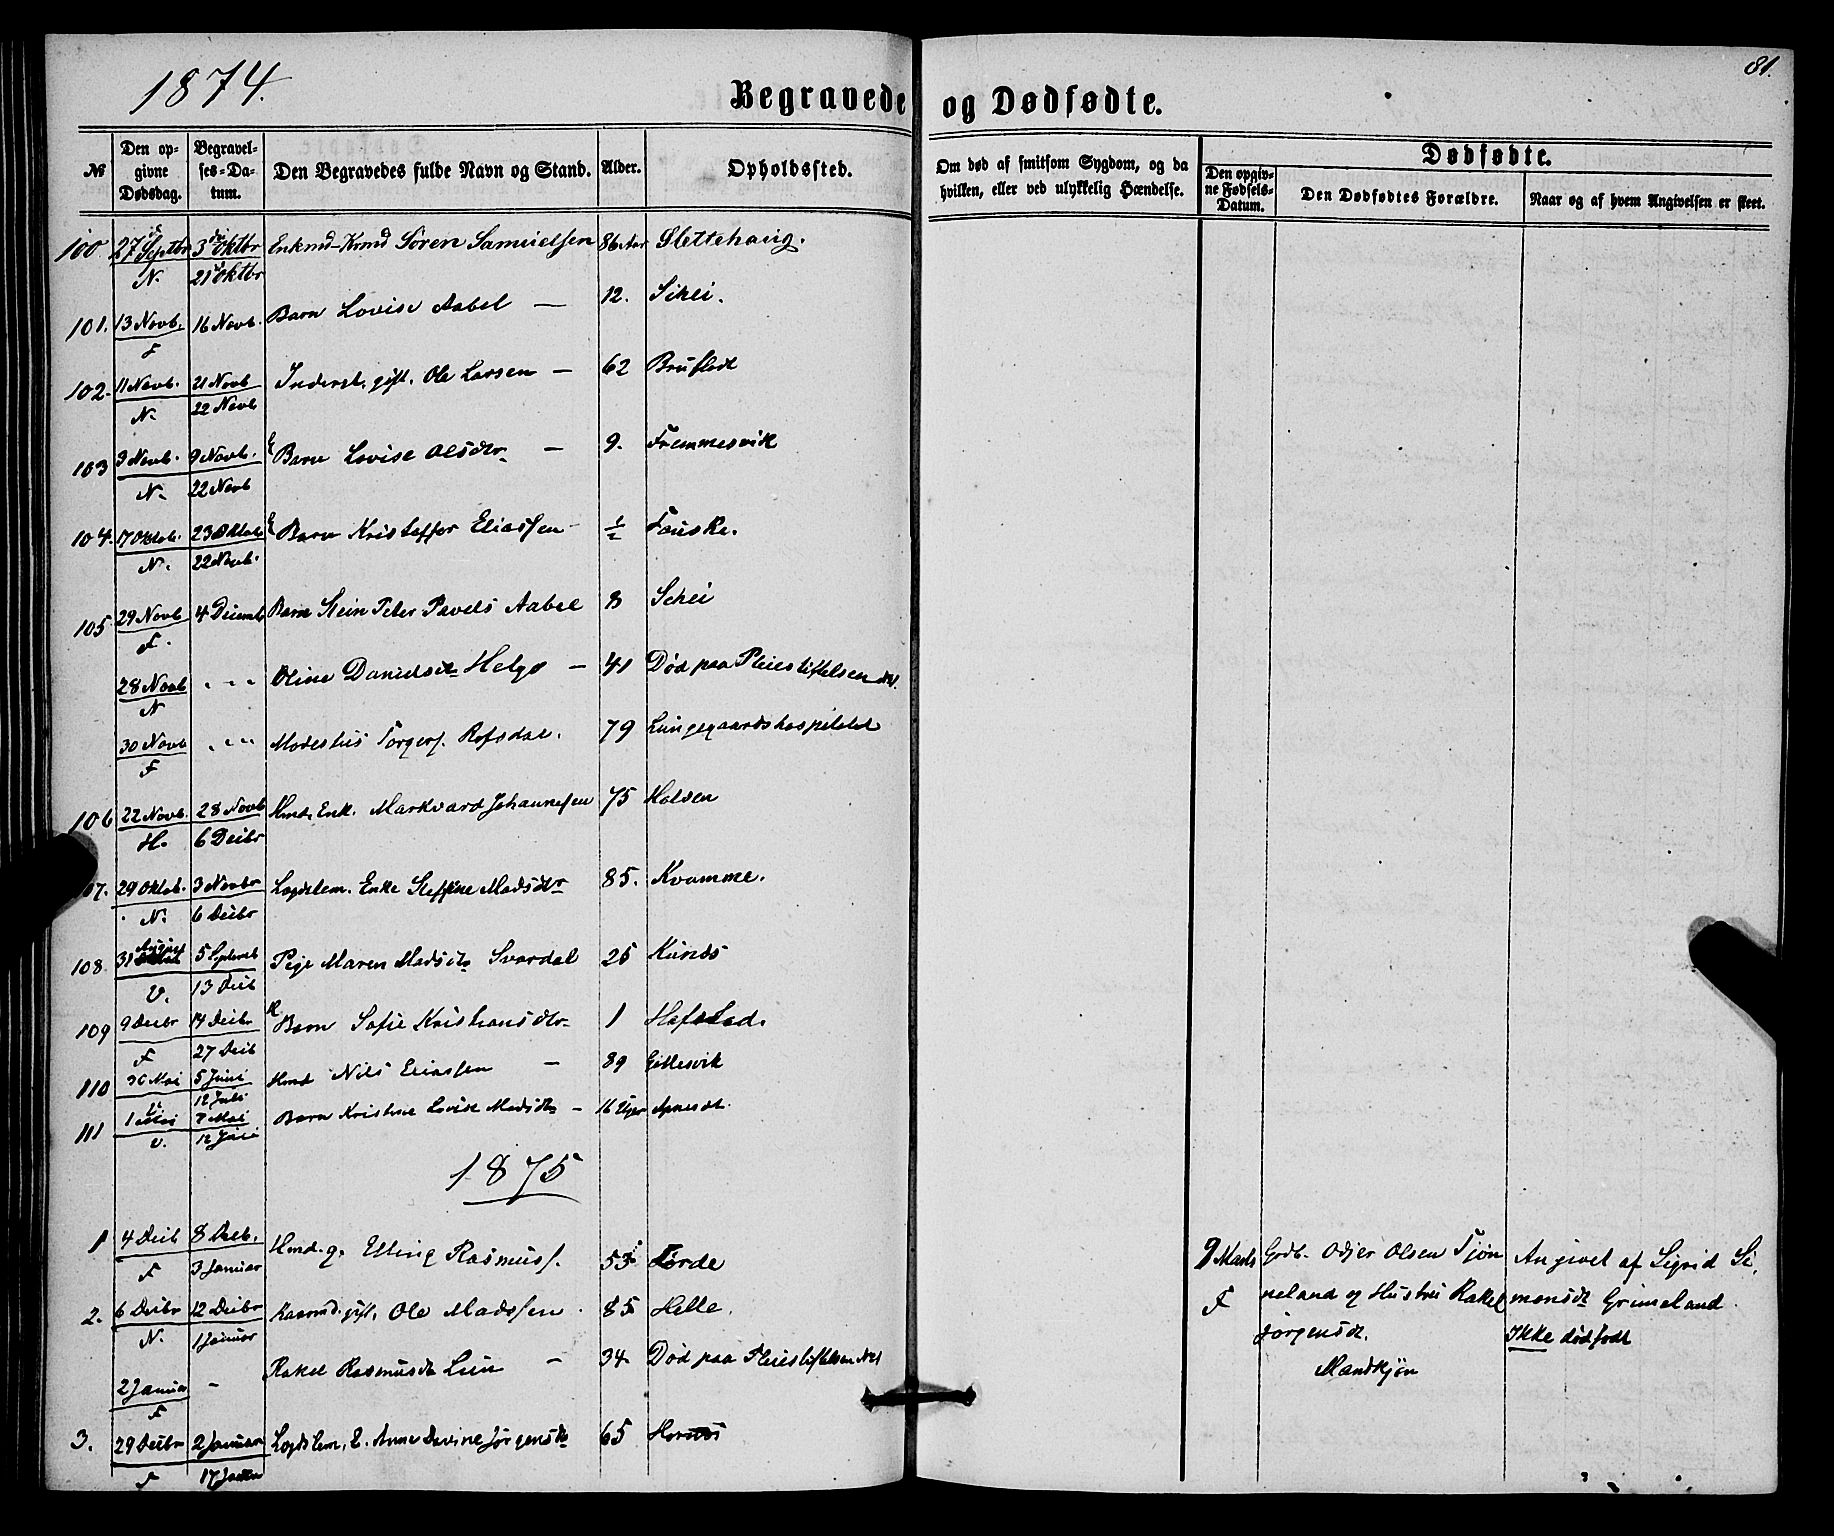 1874.
81.
Begravede og Dødfødte.
№
Den opgivne Dødsdag.
Begravelses-Datum.
Den Begravedes fulde Navn og Stand.
Alder.
Opholdssted.
Om død af smitsom Sygdom, og da hvilken, eller ved ulykkelig Hændelse.
Dødfødte.
Den opgivne Fødsels-Datum.
Den Dødfødtes Forældre.
Naar og af hvem Angivelsen er skeet.
100 27 Septbr 3 Oktbr Enkmd Kmd Sören Samuelsen 86 Aar Slettehaug.
N. 21 Oktbr
101. 13 Novb. 16 Novb. Barn Lovise Aabel — 12. Schei.
F
102. 11 Novb. 21 Novb Inderst, gift. Ole Larsen — 62 Bruflot
N. 22 Novb
103 3 Novb. 9 Novb. Barn Lovise Olsdtr — 9. Fremmesvik
N. 22 Novb
104. 17 Oktob. 23 Oktob Barn Kristoffer Eliassen - ½ Fauske.
N. 22 Novb.
105 29 Novb 4 Decemb Barn Stein Peter Pavels Aabel 8 Schei
F.
28 Novb " " " Oline Danielsdt Helgø — 41 Død paa Pleiestiftelsen №1.
N
30 Novb " " " Modestus Torgers. Rofsdal. 79 Lungegaardshospitalet
F
106 22 Novb. 28 Novb Hmd. Enk. Markvard Johannesen 75 Holsen
H. 6 Decbr
107. 29 Oktob. 3 Novbr Lægdslem. Enke Steffine Madsdtr 85. Kvamme.
N. 6 Decbr
108. 31 August 5 Septemb Pige Maren Madsdt Svardal 25 Kinds
V. 13 Decb
109 9 Decbr 14 Decbr Barn Sofie Kristiansdtr 1 Hafstad.
F 27 Decb
110 30 Mai 5 Juni Hmd Nils Eliassen — 89 Gillesvik
12 Juli
111 1 Mai 7 Mai Barn Kristine Lovise Madsdtr - 16 Uger
V. 12 Juli
1875
1 4 Decb 8 Decb. Hmd. g. Elling Rasmuss. 53 Førde
F 3 Januar
2. 6 Decbr 12 Decbr Kaarmd. gift. Ole Madssen. 85 Helle.
N. 1 Januar
2 Januar - Rakel Rasmusdt Lien — 34 Død paa Pleiestiftelsen №1
F
3. 29 Decbr 2 Januar Lægdslem, E. Anne Davine Jørgensdt 65 Hornes
F 17 Januar
9 Marts Grdb. Odjer Olsen Tjøn Angivet af Sigrid Si
F neland og Hustru Rakel monsdt Grimeland.
Jørgensdt. Ikke dødfødt
Mandkjøn